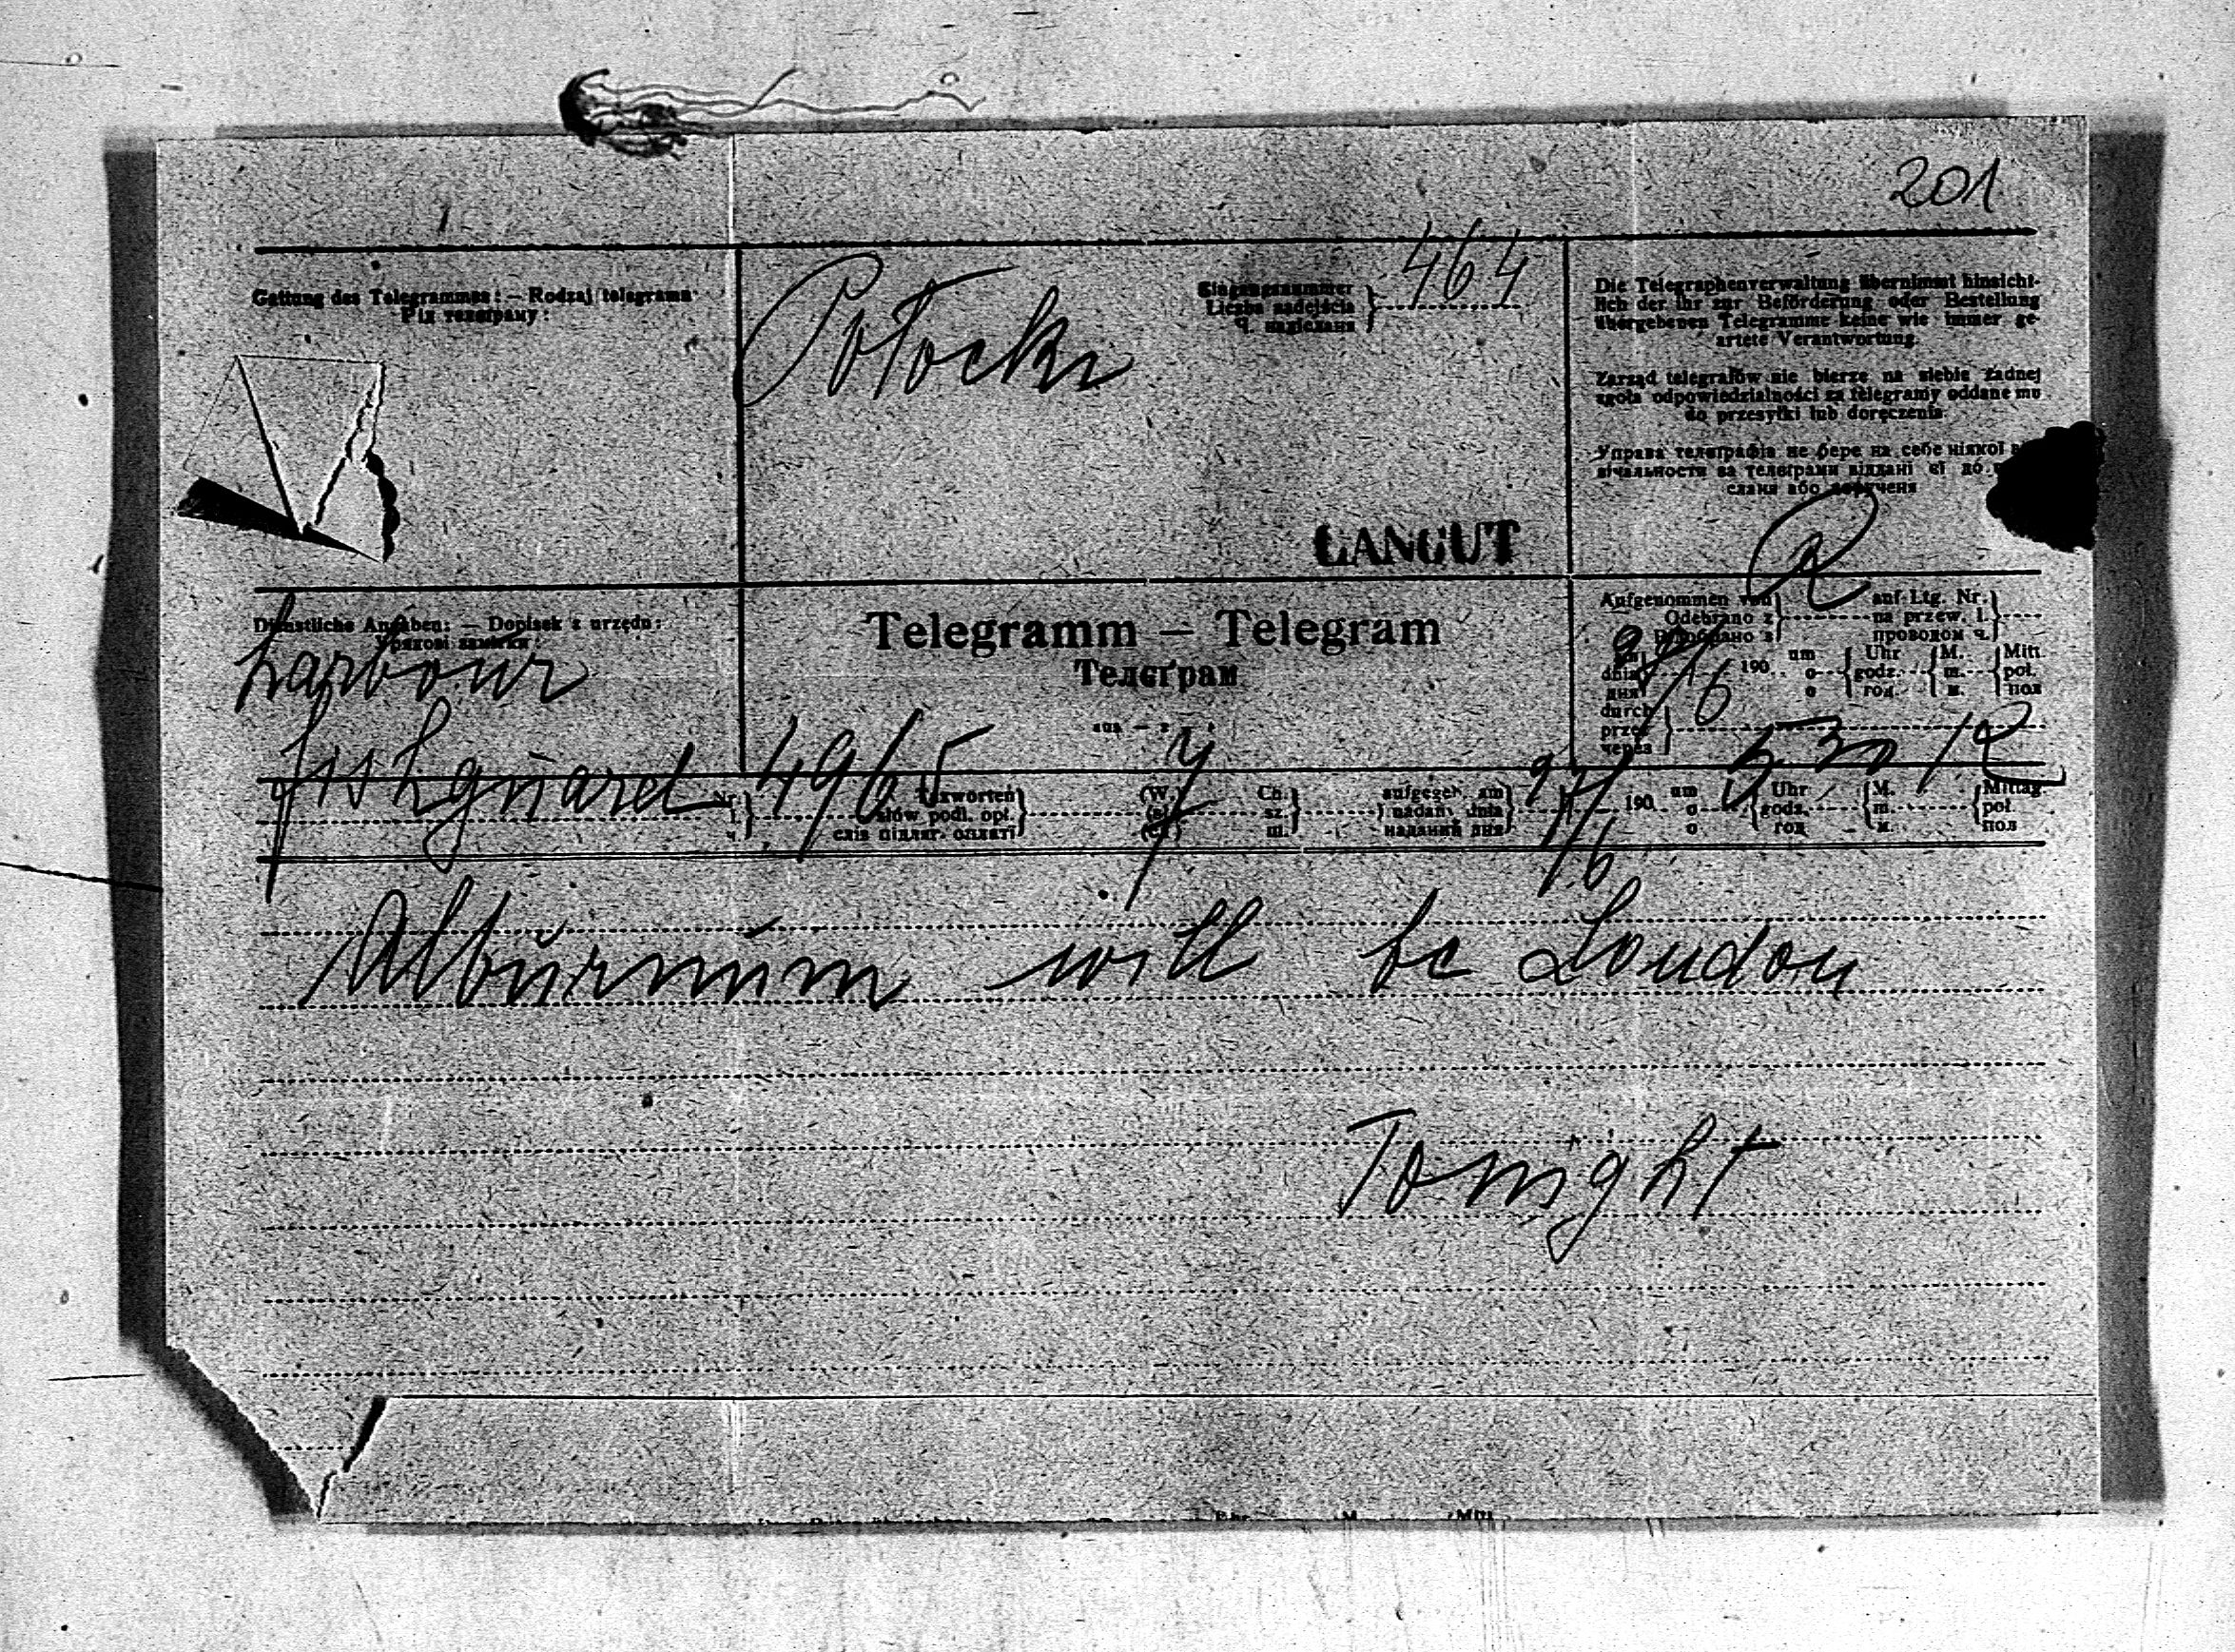 201
Gattung des Telegrammes: — Rodzaj telegramu
Рід телєґраму:
Potocki
Eingangsnummer
Liczba nadejścia
Ч. надісланя
464
ŁAŃCUT
Die Telegraphenverwaltung übernimmt hinsicht-
lich der ihr zur Beförderung oder Bestellung
übergebenen Telegramme keine wie immer ge-
artete Verantwortung.
Zarząd telegrafów nie bierze na siebie żadnej
zgoła odpowiedzialności za telegramy oddane mu
do przesyłki lub doręczenia
Управа телєґрафів не бере на себе ніякої
вічальности за телєґрами віддані єї до
сланя або доручення
R
Dienstliche Angaben: — Dopisek z urzędu:
Урядові замітки
harbour
fishguard
Telegramm — Telegram
Телєґрам
aus — z — з
Aufgenommen von auf Ltg. Nr.
Odebrano z na przew. l.
Відобрано з проводом ч.
am 9/6 190 um Uhr M. Mitt.
dnia o godz. m. poł.
дня о год. м. пол
durch
przez
через
Nr. 4965 Taxworten (W. 7 Ch. aufgegeb. am 9/6 190 um 5 30 Uhr M. Mittag
l. słów podl. opł. (s) sz. nadan. dnia o godz. m. poł.
ч слів підляг. оплатї (сл) ш. наданий дня о год м. пол
Alburnum will be London
Tonight